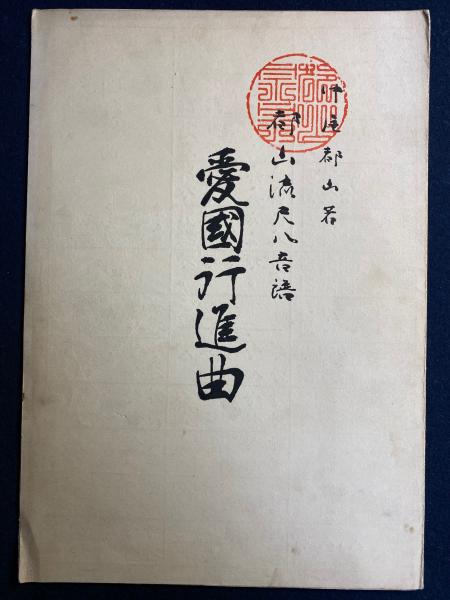 中尾都山著
都山流尺八音譜
愛國行進曲